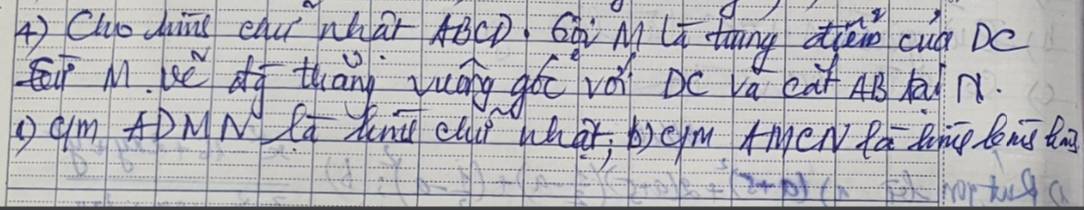 4) Cho hình chữ nhật ABCD. Gọi M là trung điểm của DC
Từ M vẽ đg thẳng vuông góc với DC và cắt AB tại N.
a) c/m ADMN là hình chữ nhật; b) c/m AMCN là hình bình hành